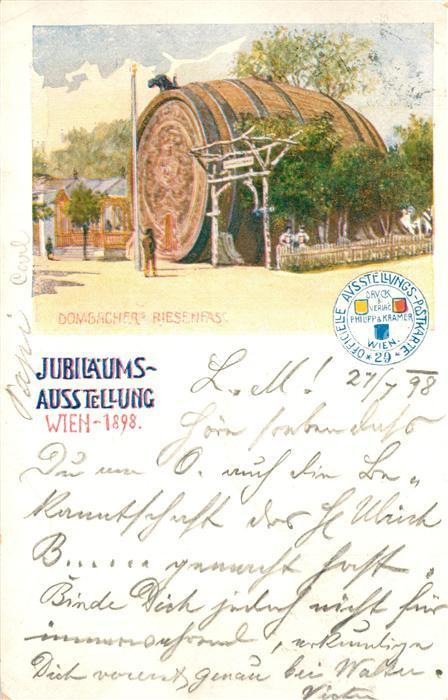 DOMBACHERS RIESENFASS
OFFICIELLE AUSSTELLUNGS-POSTKARTE
DRUCK & VERLAG
PHILIPP & KRAMER
WIEN.
* 29 *
JUBILÄUMS-
AUSSTELLUNG
WIEN-1898.
Carl
L. M! 27/7 98
Höre soeben daß
Du um O. auch die Be-
kanntschaft des H Ulrich
B...... gemacht hast.
Binde Dich jedoch nicht für
immerwährend, erkundige
Dich vorerst genau bei Walter.